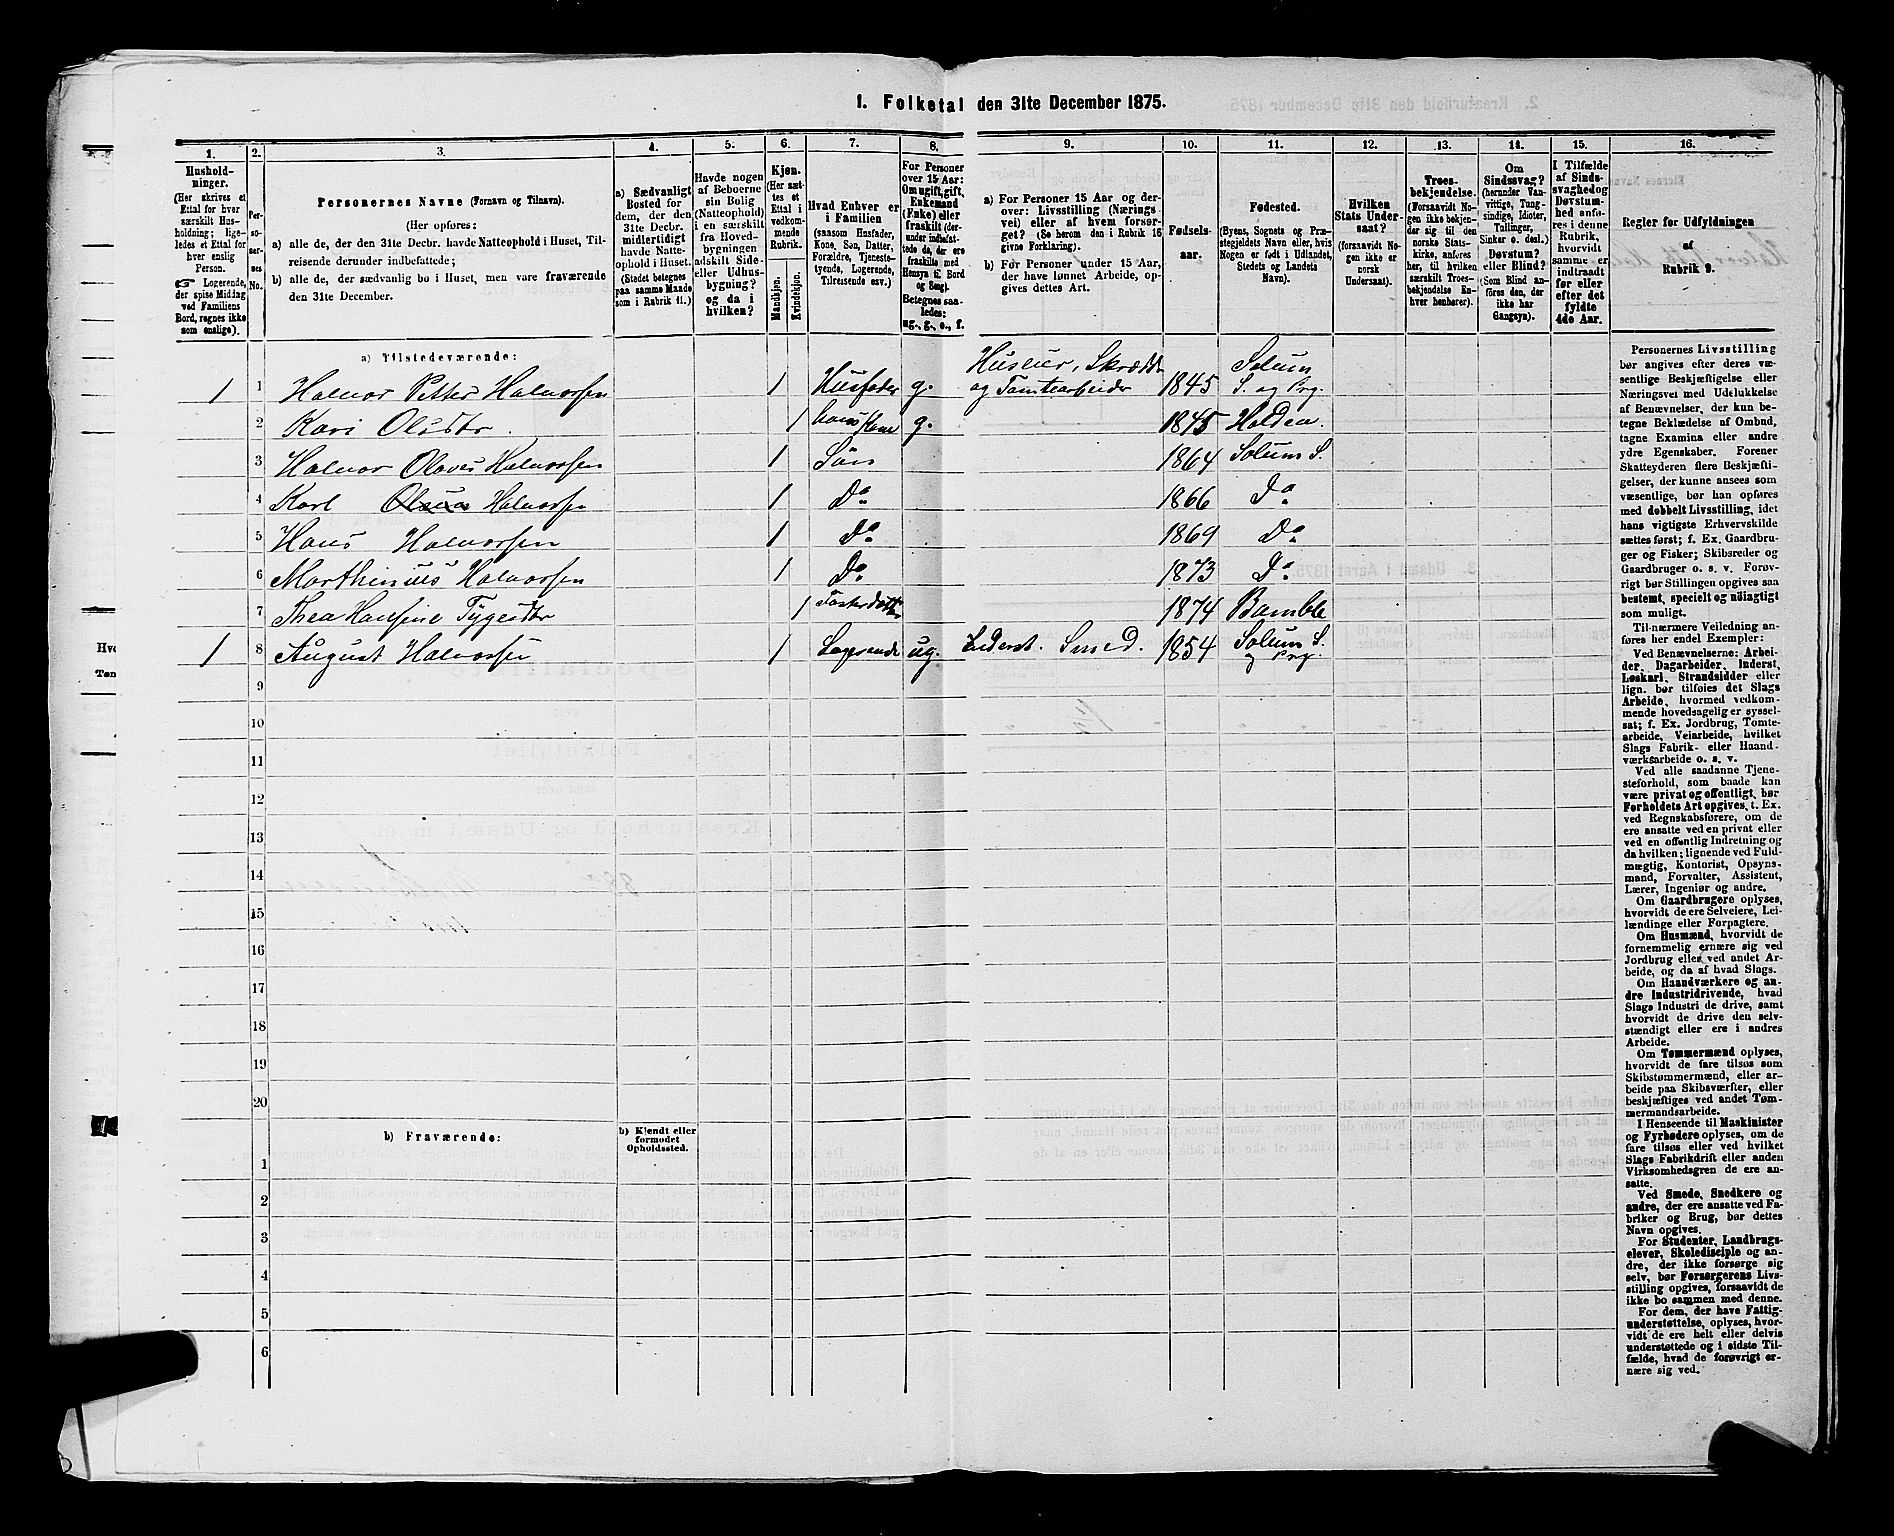 1. Folketal den 31te December 1875.
1. 2. 3. 4. 5. 6. 7. 8. 9. 10. 11. 12. 13. 14. 15. 16.
Hushold-
ninger.
(Her skrives et
Ettal for hver
særskilt Hus-
holdning; lige-
ledes et Ettal for
hver enslig
Person.
☛ Logerende,
der spise Middag
ved Familiens
Bord, regnes ikke
som enslige).
Per-
so-
ner-
nes
No.
Personernes Navne (Fornavn og Tilnavn).
(Her opføres:
a) alle de, der den 31te Decbr. havde Natteophold i Huset, Til-
reisende derunder indbefattede;
b) alle de, der sædvanlig bo i Huset, men vare fraværende
den 31te December.
a) Sædvanligt
Bosted for
dem, der den
31te Decbr.
midlertidigt
havde Natte-
ophold i Huset.
(Stedet betegnes
paa samme Maade
som i Rubrik 11.)
Havde nogen
af Beboerne
sin Bolig
(Natteophold)
i en særskilt
fra Hoved-
bygningen
adskilt Side-
eller Udhus-
bygning?
og da i
hvilken?
Kjøn.
(Her sæt-
tes et
Ettal i
vedkom-
mende
Rubrik.
Mandkjøn.
Kvindekjøn.
Hvad Enhver er
i Familien
(saasom Husfader,
Kone, Søn, Datter,
Forældre, Tjeneste-
tyende, Logerende,
Tilreisende osv.)
For Personer
over 15 Aar:
Om ugift, gift,
Enkemand
(Enke) eller
fraskilt (der-
under indbefat-
tede de, der ere
fraskilte med
Hensyn til Bord
og Seng).
Betegnes saa-
ledes:
ug., g., e., f.
a) For Personer 15 Aar og der-
over: Livsstilling (Nærings-
vei) eller af hvem forsør-
get? (Se herom den i Rubrik 16
givne Forklaring).
b) For Personer under 15 Aar,
der have lønnet Arbeide, op-
gives dettes Art.
Fødsels-
aar.
Fødested.
(Byens, Sognets og Præ-
stegjeldets Navn eller, hvis
Nogen er født i Udlandet,
Stedets og Landets
Navn).
Hvilken
Stats Under-
saat?
(forsaavidt No-
gen ikke er
norsk
Undersaat).
Troes-
bekjendelse.
(Forsaavidt No-
gen ikke bekjen-
der sig til den
norske Stats-
kirke, anføres
her, til hvilken
særskilt Troes-
bekjendelse En-
hver henhører).
Om
Sindssvag?
(herunder Van-
vittige, Tung-
sindige, Idioter,
Tullinger,
Sinker o. desl.)
Døvstum?
eller Blind?
(Som Blind an-
føres den, der
ikke har
Gangsyn).
I Tilfælde
af Sinds-
svaghed og
Døvstum-
hed anfø-
res i denne
Rubrik,
hvorvidt
samme er
indtraadt
før eller
efter det
fyldte
4de Aar.
Regler for Udfyldningen
af
Rubrik 9.
a) Tilstedeværende:
1 1 Halvor Petter Halvorsen 1 Husfader g. Huseier, Skrædder og Tomtearbeider 1845 Solum S. og Prg.
2 Kari Olsdtr. 1 hans Kone g. 1845 Holden.
3 Halvor Olaves Halvorsen 1 Søn 1864 Solum S.
4 Karl Halvorsen 1 Do 1866 Do
5 Hans Halvorsen 1 Do 1869 Do
6 Marthinius Halvorsen 1 Do 1873 Do
7 Thea Hansine Tygesdtr 1 Fosterdatter 1874 Bamble
1 8 August Halvorsen 1 Logerende ug. Inderst. Smed. 1854 Solum S. og Prg.
9
10
11
12
13
14
15
16
17
18
19
20
b) Fraværende:
b) Kjendt eller
formodet
Opholdssted.
1
2
3
4
5
6
Personernes Livsstilling
bør angives efter deres væ-
sentlige Beskjæftigelse eller
Næringsvei med Udelukkelse
af Benævnelser, der kun be-
tegne Beklædelse af Ombud,
tagne Examina eller andre
ydre Egenskaber. Forener
Skatteyderen flere Beskjæfti-
gelser, der kunne ansees som
væsentlige, bør han opføres
med dobbelt Livsstilling, idet
hans vigtigste Erhvervskilde
sættes først; f. Ex. Gaardbru-
ger og Fisker; Skibsreder og
Gaardbruger o. s. v. Forøv-
rigt bør Stillingen opgives saa
bestemt, specielt og nøiagtigt
som muligt.
Til nærmere Veiledning an-
føres her endel Exempler:
Ved Benævnelserne: Arbei-
der, Dagarbeider, Inderst,
Løskarl, Strandsidder eller
lign. bør tilføies det Slags
Arbeide, hvormed vedkom-
mende hovedsagelig er syssel-
sat; f. Ex. Jordbrug, Tomte-
arbeide, Veiarbeide, hvilket
Slags Fabrik- eller Haand-
værksarbeide o. s. v.
Ved alle saadanne Tjene-
steforhold, som baade kan
være privat og offentligt, bør
Forholdets Art opgives, t. Ex.
ved Regnskabsførere, om de
ere ansatte ved en privat eller
ved en offentlig Indretning og
da hvilken; lignende ved Fuld-
mægtig, Kontorist, Opsyns-
mand, Forvalter, Assistent,
Lærer, Ingeniør og andre.
Om Gaardbrugere oplyses,
hvorvidt de ere Selveiere, Lei-
lændinge eller Forpagtere.
Om Husmænd, hvorvidt de
fornemmelig ernære sig ved
Jordbrug eller ved andet Ar-
beide, og da af hvad Slags.
Om Haandværkere og an-
dre Industridrivende, hvad
Slags Industri de drive, samt
hvorvidt de drive den selv-
stændigt eller ere i andres
Arbeide.
Om Tømmermænd oplyses,
hvorvidt de fare tilsøs som
Skibstømmermænd, eller ar-
beide paa Skibsværfter, eller
beskjæftiges ved andet Tøm-
mermandsarbeide.
I Henseende til Maskinister
og Fyrbødere oplyses, om de
fare tilsøs eller ved hvilket
Slags Fabrikdrift eller anden
Virksomhedsgren de ere an-
satte.
Ved Smede, Snedkere og
andre, der ere ansatte ved Fa-
briker og Brug, bør dettes
Navn opgives.
For Studenter, Landbrugs-
elever, Skoledisciple og an-
dre, der ikke forsørge sig
selv, bør Forsørgerens Livs-
stilling opgives, forsaavidt de
ikke bo sammen med denne.
For dem, der have Fattig-
understøttelse, oplyses, hvor-
vidt de ere helt eller delvis
understøttede og i sidste Til-
fælde, hvad de forøvrigt er-
nære sig ved.